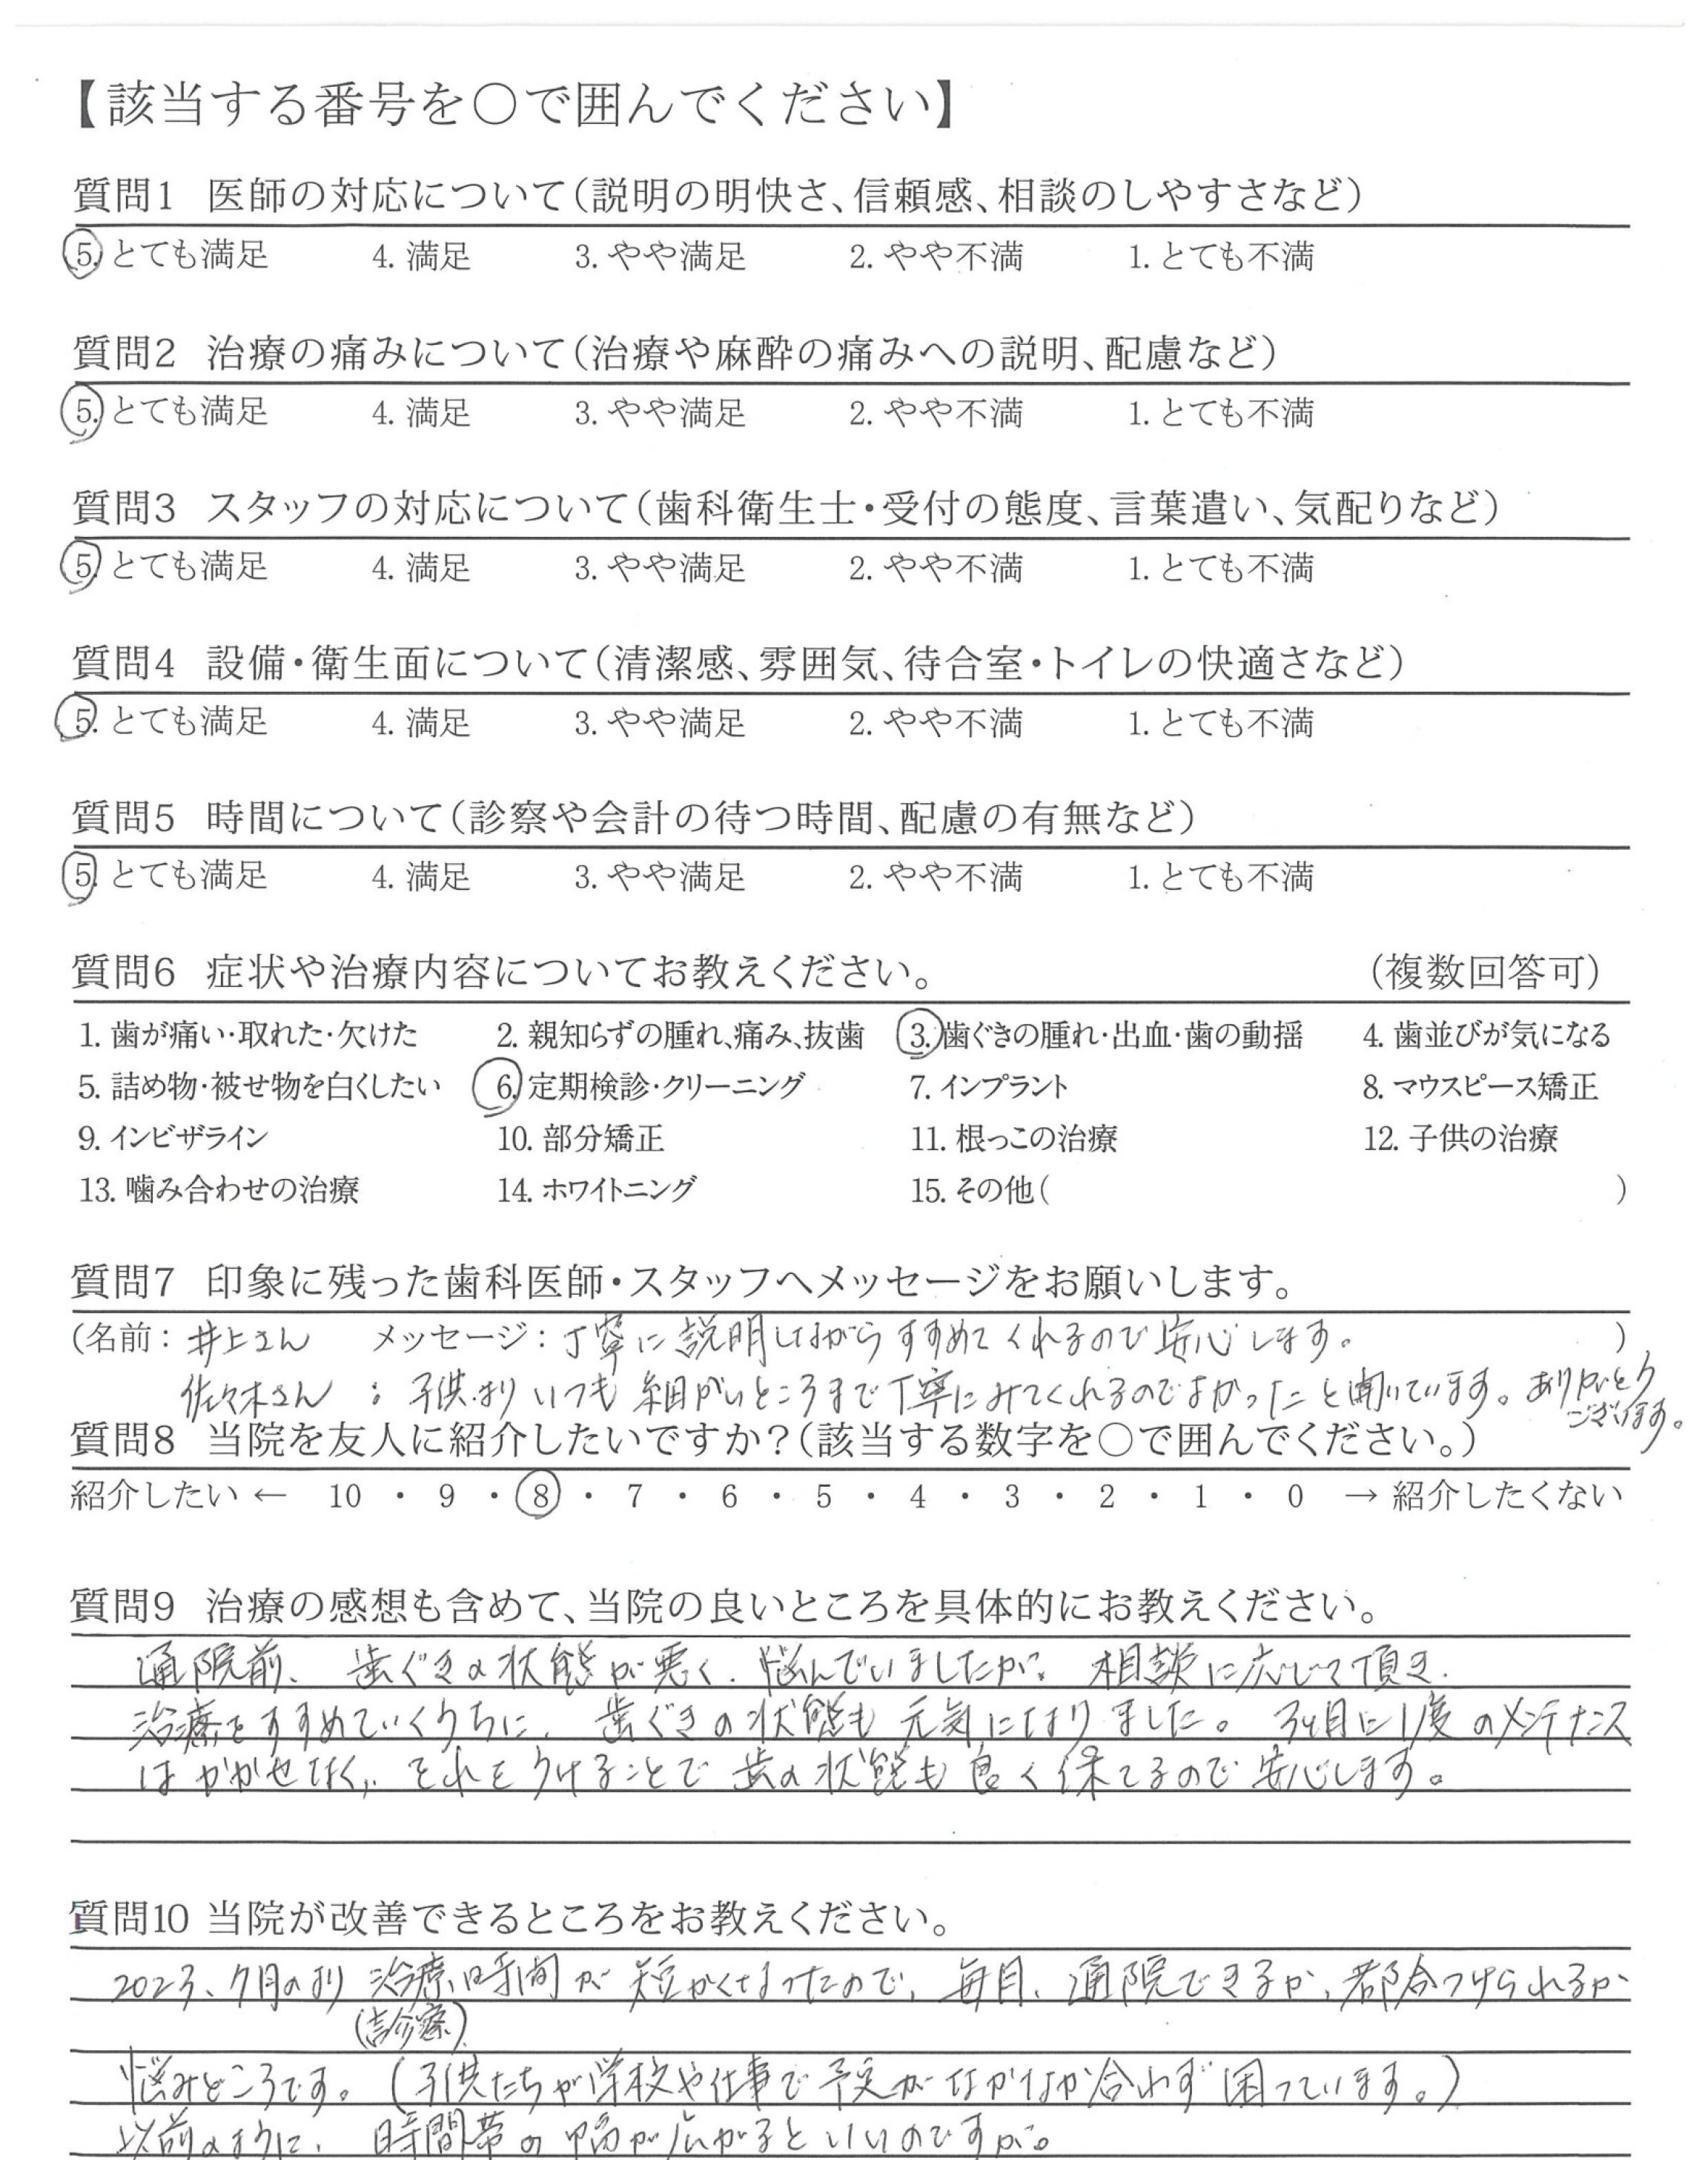 【該当する番号を○で囲んでください】
質問1 医師の対応について(説明の明快さ、信頼感、相談のしやすさなど)
5. とても満足 4. 満足 3. やや満足 2. やや不満 1. とても不満
質問2 治療の痛みについて(治療や麻酔の痛みへの説明、配慮など)
5. とても満足 4. 満足 3. やや満足 2. やや不満 1. とても不満
質問3 スタッフの対応について(歯科衛生士・受付の態度、言葉遣い、気配りなど)
5. とても満足 4. 満足 3. やや満足 2. やや不満 1. とても不満
質問4 設備・衛生面について(清潔感、雰囲気、待合室・トイレの快適さなど)
5. とても満足 4. 満足 3. やや満足 2. やや不満 1. とても不満
質問5 時間について(診察や会計の待つ時間、配慮の有無など)
5. とても満足 4. 満足 3. やや満足 2. やや不満 1. とても不満
質問6 症状や治療内容についてお教えください。 (複数回答可)
1. 歯が痛い・取れた・欠けた 2. 親知らずの腫れ、痛み、抜歯 3. 歯ぐきの腫れ・出血・歯の動揺 4. 歯並びが気になる
5. 詰め物・被せ物を白くしたい 6. 定期検診・クリーニング 7. インプラント 8. マウスピース矯正
9. インビザライン 10. 部分矯正 11. 根っこの治療 12. 子供の治療
13. 噛み合わせの治療 14. ホワイトニング 15. その他( )
質問7 印象に残った歯科医師・スタッフへメッセージをお願いします。
(名前: 井上さん メッセージ: 丁寧に説明しながらすすめてくれるので安心します。 )
佐々木さん : 子供より いつも 細かいところまで丁寧にみてくれるのでよかったこと聞いています。ありがとう
ございます。
質問8 当院を友人に紹介したいですか?(該当する数字を○で囲んでください。)
紹介したい ← 10 ・ 9 ・ 8 ・ 7 ・ 6 ・ 5 ・ 4 ・ 3 ・ 2 ・ 1 ・ 0 → 紹介したくない
質問9 治療の感想も含めて、当院の良いところを具体的にお教えください。
通院前、歯ぐきの状態が悪く、悩んでいましたが、相談に応じて頂き、
治療をすすめていくうちに、歯ぐきの状態も元気になりました。3ヶ月に1度のメンテナンス
はかかせなく、それをうけることで歯の状態も良く保てるので安心します。
質問10 当院が改善できるところをお教えください。
2023、7月のより 治療時間が短かくなったので、毎月、通院できるか、都合つけられるか
(診療)
悩みどころです。(子供たちが学校や仕事で予定がなかなか合わず困っています。)
以前のように、時間帯の幅が広がるといいのですが。